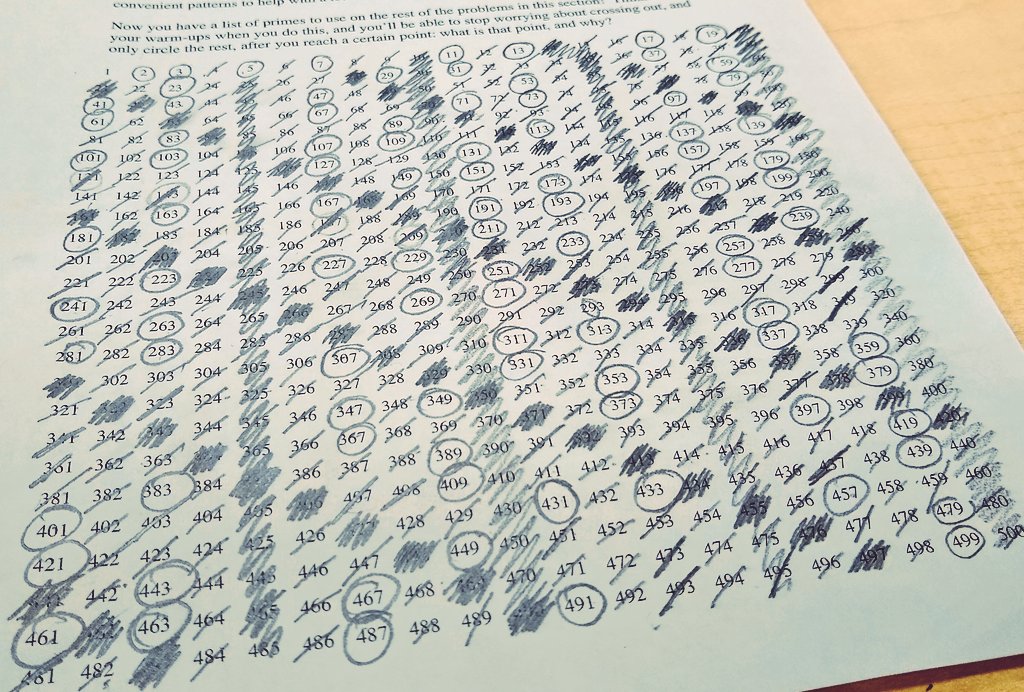 convenient patterns to help with
Now you have a list of primes to use on the rest of the problems in this section!
your warm-ups when you do this, and you'll be able to stop worrying about crossing out, and
only circle the rest, after you reach a certain point: what is that point, and why?
1 2 3 4 5 7 11 13 17 19
22 23 24 26 27 29 31 32 37
41 43 44 46 47 48 51 52 53 59
61 62 64 66 67 68 69 71 72 73 74 79
81 82 83 86 87 88 89 92 93 94 96 97
101 102 103 104 106 107 108 109 111 113 114 116 117 118
121 122 123 124 127 128 129 130 131 134 136 137 139
141 142 143 144 146 148 149 150 151 152 153 156 157 158
162 163 164 166 167 169 170 171 172 173 174 176 177 178 179
181 183 184 185 186 187 188 190 191 192 193 194 195 197 198 199 200
201 202 204 205 206 207 208 209 211 212 213 214 215 216 218 219 220
221 222 223 225 226 227 228 229 230 232 233 234 235 236 237 239 240
241 242 243 244 246 247 248 249 250 251 253 254 255 256 257 258
261 262 263 264 265 267 268 269 270 271 272 274 275 276 277 278 279
281 282 283 284 285 286 288 289 290 291 292 293 295 296 297 298 299 300
302 303 304 305 306 307 309 310 311 312 313 314 316 317 318 319 320
321 323 324 325 326 327 328 330 331 332 333 334 335 337 338 339 340
341 342 344 345 346 347 348 349 351 352 353 354 355 356 358 359 360
361 362 363 365 366 367 368 369 370 372 373 374 375 376 377 379 380
381 382 383 384 386 387 388 389 390 391 393 394 395 396 397 398 400
401 402 403 404 405 407 408 409 410 411 412 414 415 416 417 418 419
421 422 423 424 425 426 428 429 430 431 432 433 435 436 437 438 439 440
442 443 444 445 446 447 449 450 451 452 453 454 456 457 458 459 460
461 463 464 465 466 467 468 470 471 472 473 474 475 477 478 479 480
481 482 484 485 486 487 488 489 491 492 493 494 495 496 498 499 500